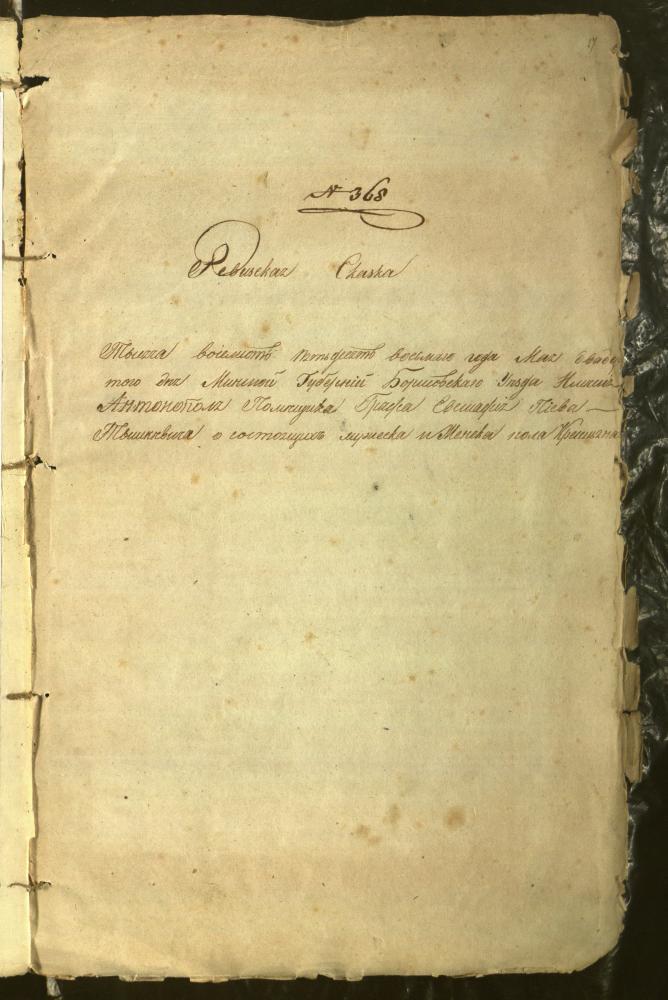 17
№ 368
Ревизская Сказка
Тысяча восемсотъ пятьдесятъ восьмаго года Мая двадца
того дня Минской Губерніи Борисовскаго Уѣзда Имѣнія
Антонополя Помещика Графа Евстафія Піева —
Тышкевича о состоящихъ мужеска и женска пола Крестьяна